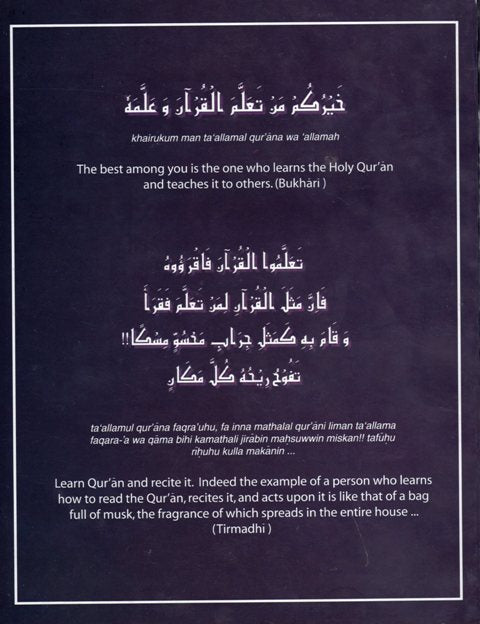 خَيْرُكُمْ مَنْ تَعَلَّمَ الْقُرْآنَ وَ عَلَّمَهُ
khairukum man ta'allamal qur'āna wa 'allamah
The best among you is the one who learns the Holy Qur'ān
and teaches it to others. (Bukhāri )
تَعَلَّمُوا الْقُرْآنَ فَاقْرَؤُوهُ
فَاِنَّ مَثَلَ الْقُرْآنِ لِمَنْ تَعَلَّمَ فَقَرَأَ
وَ قَامَ بِهِ كَمَثَلِ جِرَابٍ مَحْسُوٍّ مِسْكًا!!
تَفُوْحُ رِيْحُهُ كُلَّ مَكَانٍ
ta'allamul qur'āna faqra'uhu, fa inna mathalal qur'āni liman ta'allama
faqara-'a wa qāma bihi kamathali jirābin maḥsuwwin miskan!! tafūḥu
rīḥuhu kulla makānin ...
Learn Qur'ān and recite it. Indeed the example of a person who learns
how to read the Qur'ān, recites it, and acts upon it is like that of a bag
full of musk, the fragrance of which spreads in the entire house ...
(Tirmadhi )